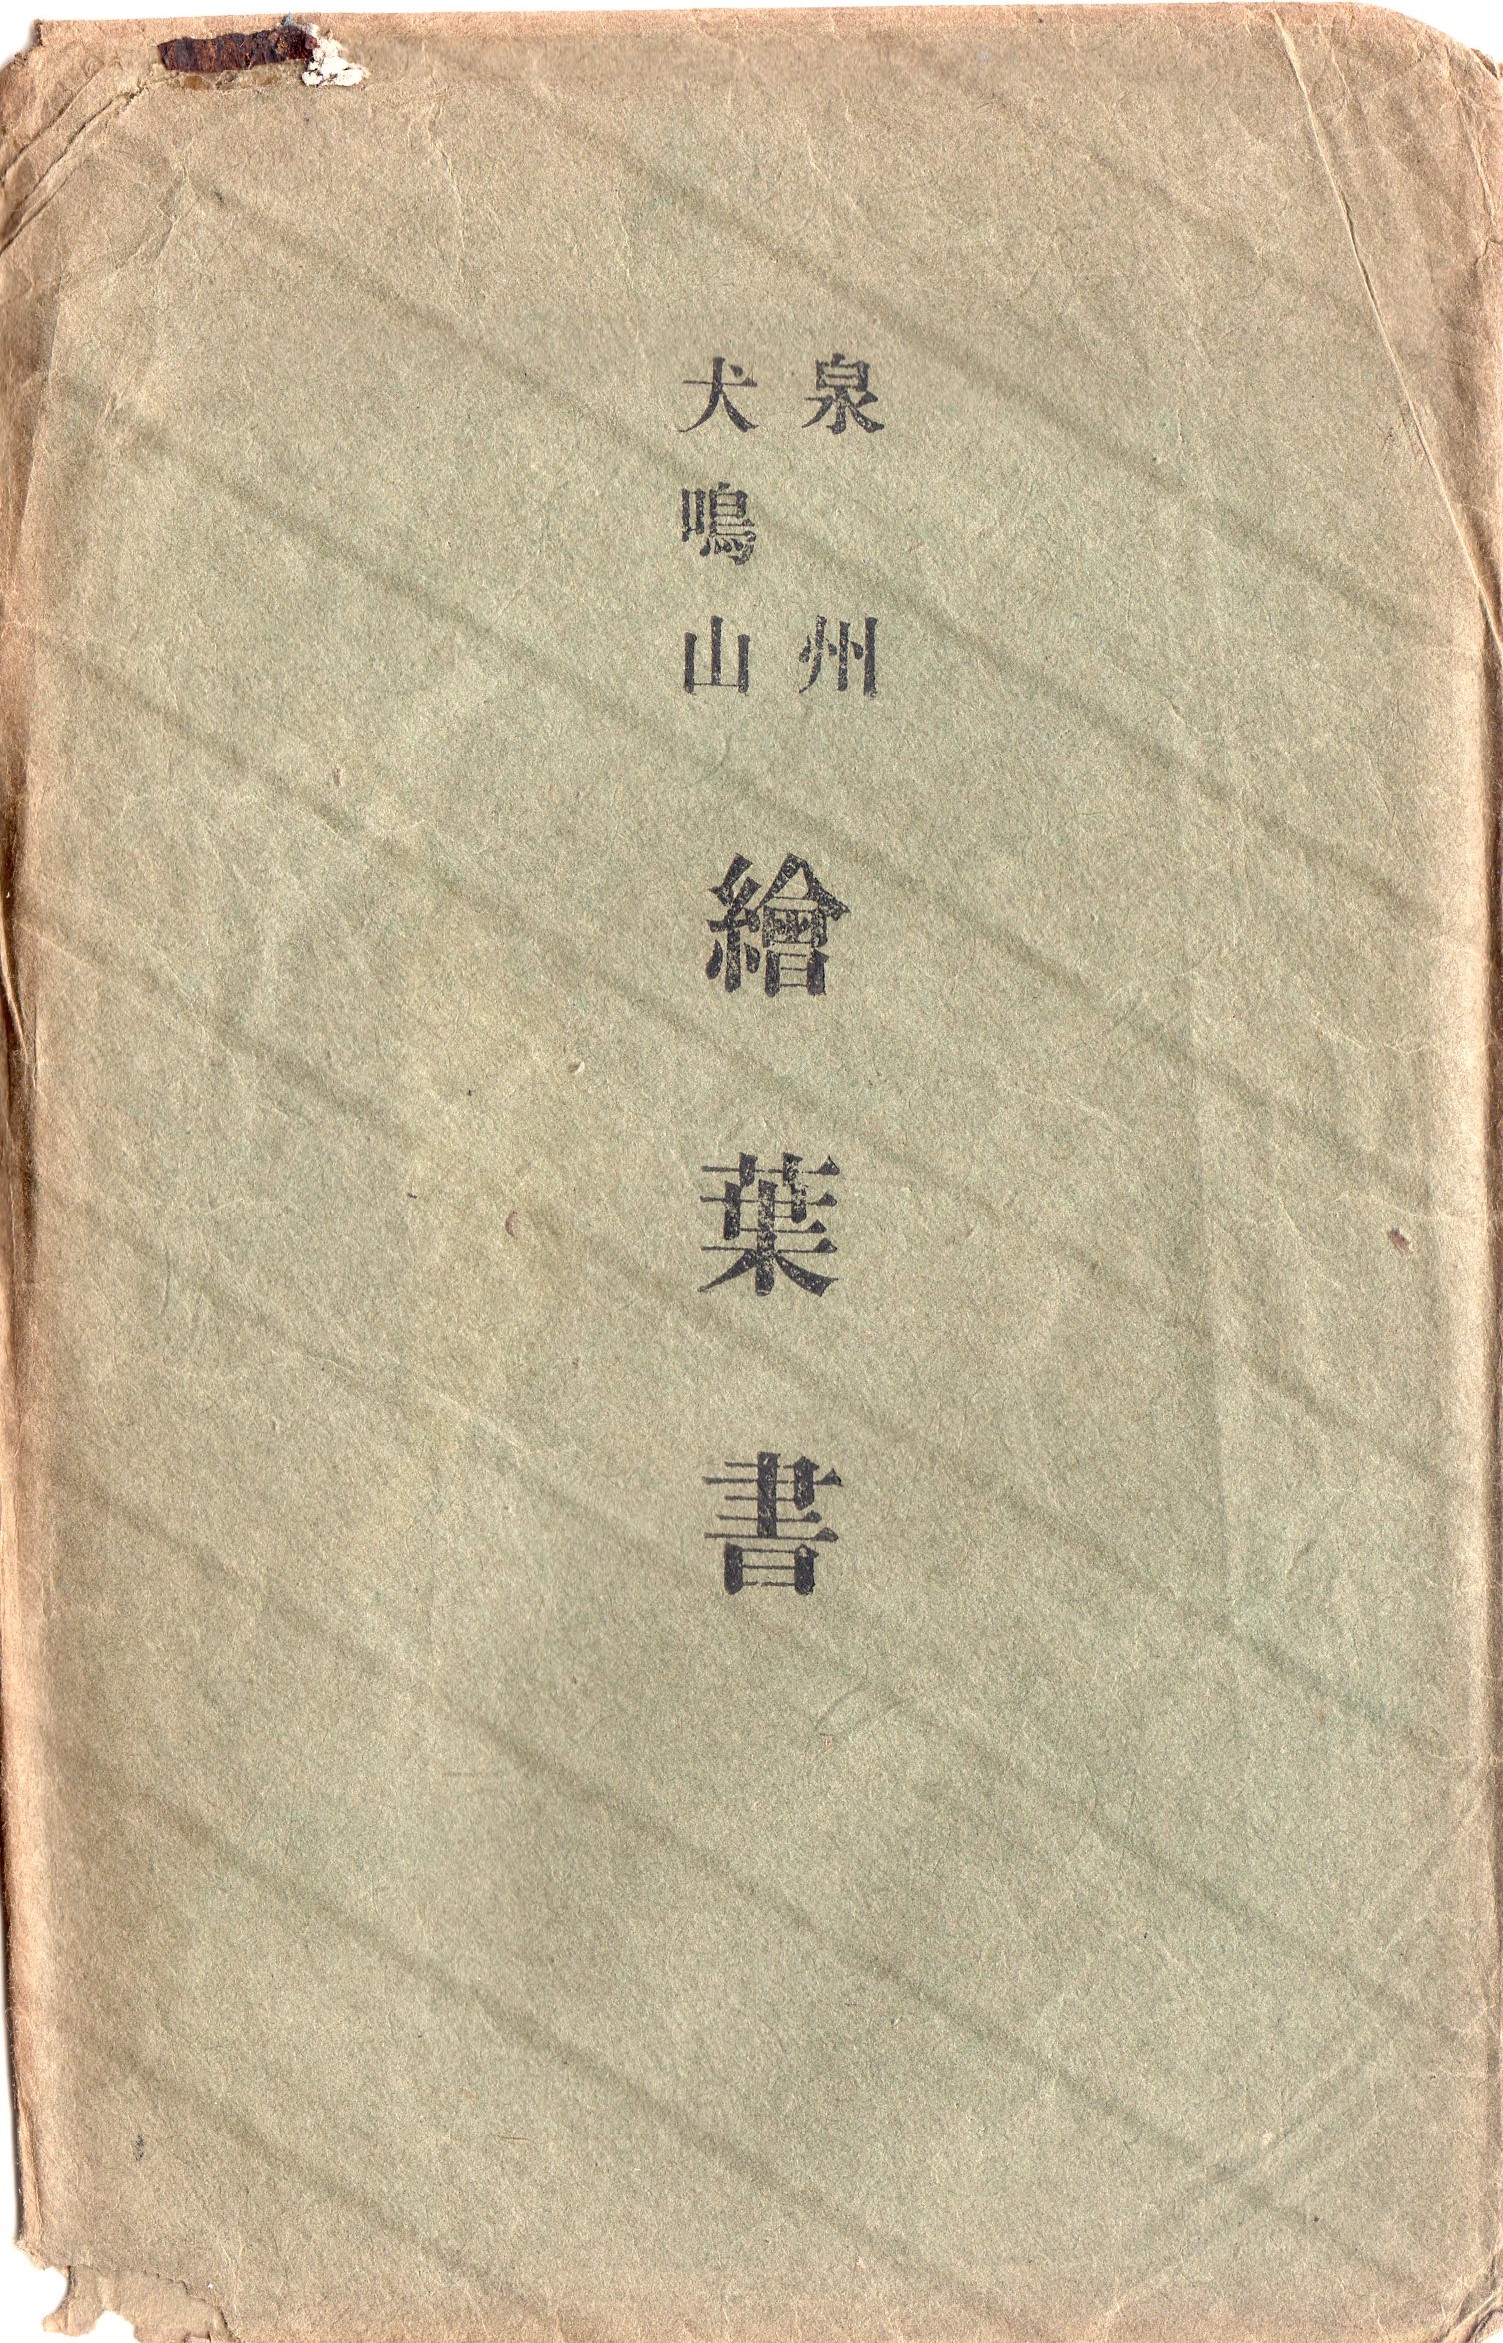 泉州
犬鳴山
繪葉書